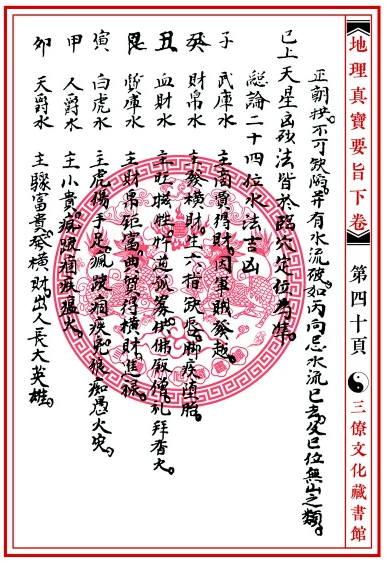 地理真寶要旨下卷 第四十頁 三僚文化藏書館
正朝拱。不可欽陷。并有水流破。如丙向忌水流巳去。及巳位無山之類。
已上天星凶砂法皆於臨穴定位為準。
總論二十四位水法吉凶
子 武庫水 主商賈得財。因軍賊發越。
癸 財帛水 主發橫財。主六指缺唇。脚疾墮胎。
丑 血財水 主旺孳牲。佛殿僧尼拜香火。
艮 財庫水 主財帛巨富。典質得橫財進祿。
寅 白虎水 主虎傷手足。瘋跛痼疾。痴愚火災。
甲 人爵水 主小貴。瘋跛痼疾瘟火。
卯 天爵水 主驟富貴。發橫財。出人長大英雄。